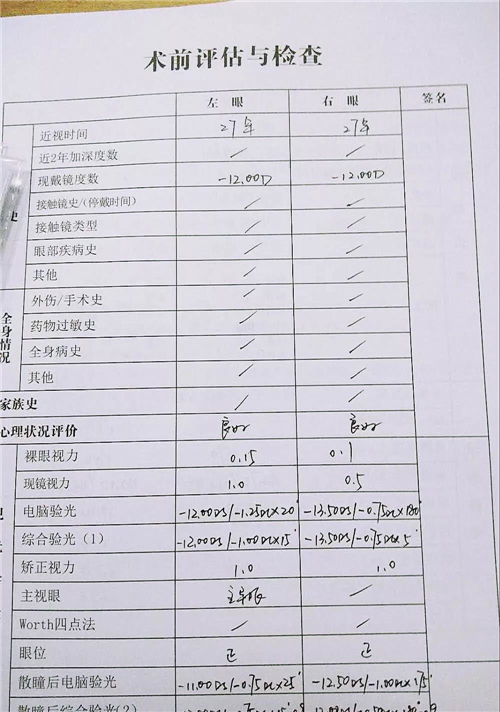 术前评估与检查
左 眼 右 眼 签名
近视时间 27年 27年
近2年加深度数 / /
现戴镜度数 -12.00D -12.00D
史 接触镜史/(停戴时间) / /
接触镜类型 / /
眼部疾病史 / /
其他 / /
外伤/手术史 / /
全身情况 药物过敏史 / /
全身病史 / /
其他 / /
家族史 / /
心理状况评价 良好 良好
裸眼视力 0.15 0.1
现镜视力 1.0 0.5
电脑验光 -12.00DS/-1.25DC×20° -13.50DS/-0.75DC×180°
综合验光(1) -12.00DS/-1.00DC×15° -13.50DS/-0.75DC×5°
矫正视力 1.0 1.0
主视眼 主导眼 /
Worth四点法 / /
眼位 正 正
散瞳后电脑验光 -11.00DS/-0.75DC×25° -12.50DS/-1.00DC×175°
散瞳后综合验光(2)